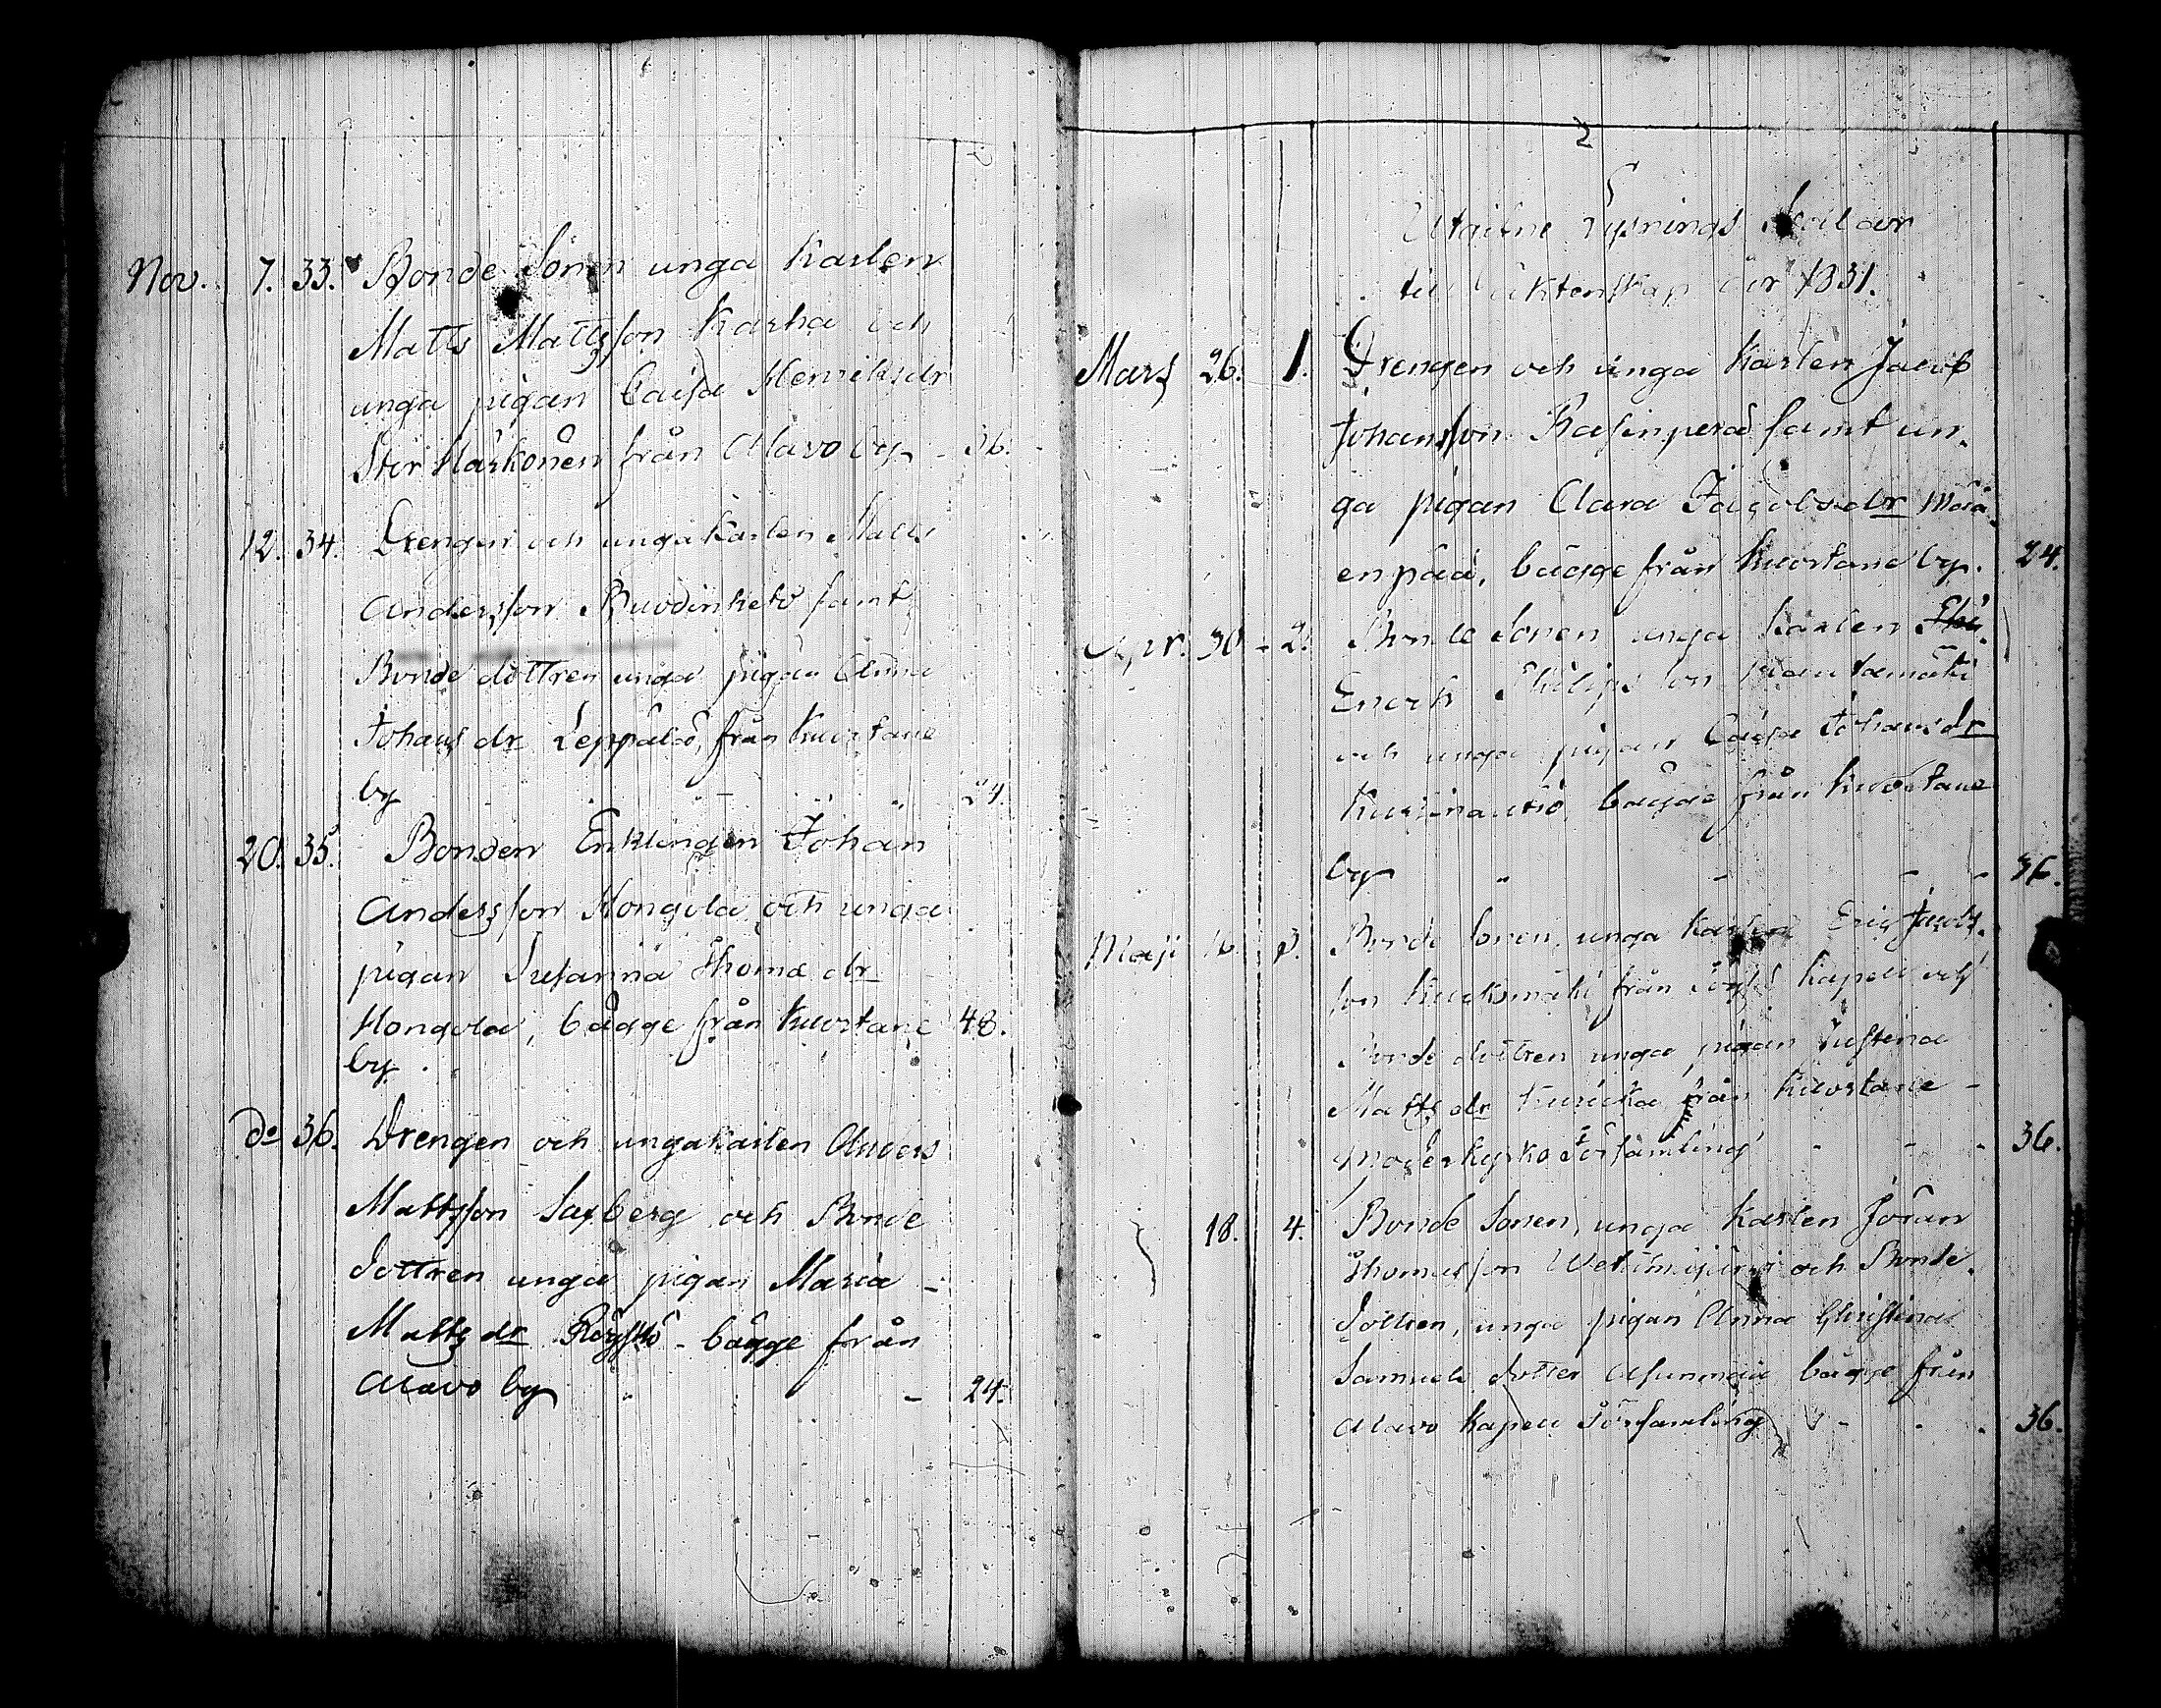 Nov. 7. 33. Bonde Sonen unga Karlen
Matts Mattsson Karha och
unga pigan Caisa Henriksdr
Stor Härkönen från Alavo by - 36.
12. 34. Drengen och unga Karlen Matts
Andersson samt
Bonde dottren unga pigan Anna
Johansdr Leppälä, från Kuortane
by 24.
20. 35. Bonden Enklingen Johan
Andersson Kongola och unga
pigan Susanna Thomædr
Kongola, bägge från Kuortane 48.
by.
do 36. Drengen och unga Karlen Anders
Mattsson Saxberg och Bonde
dottren unga pigan Maria -
Mattsdr Röyskö - bägge från
Alavo by - 24.
2
Utgifne Lysnings Sedlar
till äktenskap år 1831.
Mars 26. 1. Drengen och unga Karlen Jacob
Johansson Rasinperä samt un-
ga pigan Clara Jacobsdr Mäi-
enpää, bägge från Kuortane by. 24.
Apr. 30 - 2. Bonde Sonen unga Karlen
Enoch Philipsson Rautamäki
och unga pigan Caisa Johansdr
bägge från Kuortane
by - - - 36.
Maji 16. 3. Bonde Sonen, unga Karlen Eric Jacobs-
son från Kapell och
Bonde dottren unga pigan Justina
Mattsdr från Kuortane -
Moderkyrko Församling - - - 36.
18. 4. Bonde Sonen, unga Karlen Jöran
Thomasson och Bonde
Dottren, unga pigan Anna Christina
Samuels dotter Asunmaa bägge från
Alavo Kapell Församling - - 36.